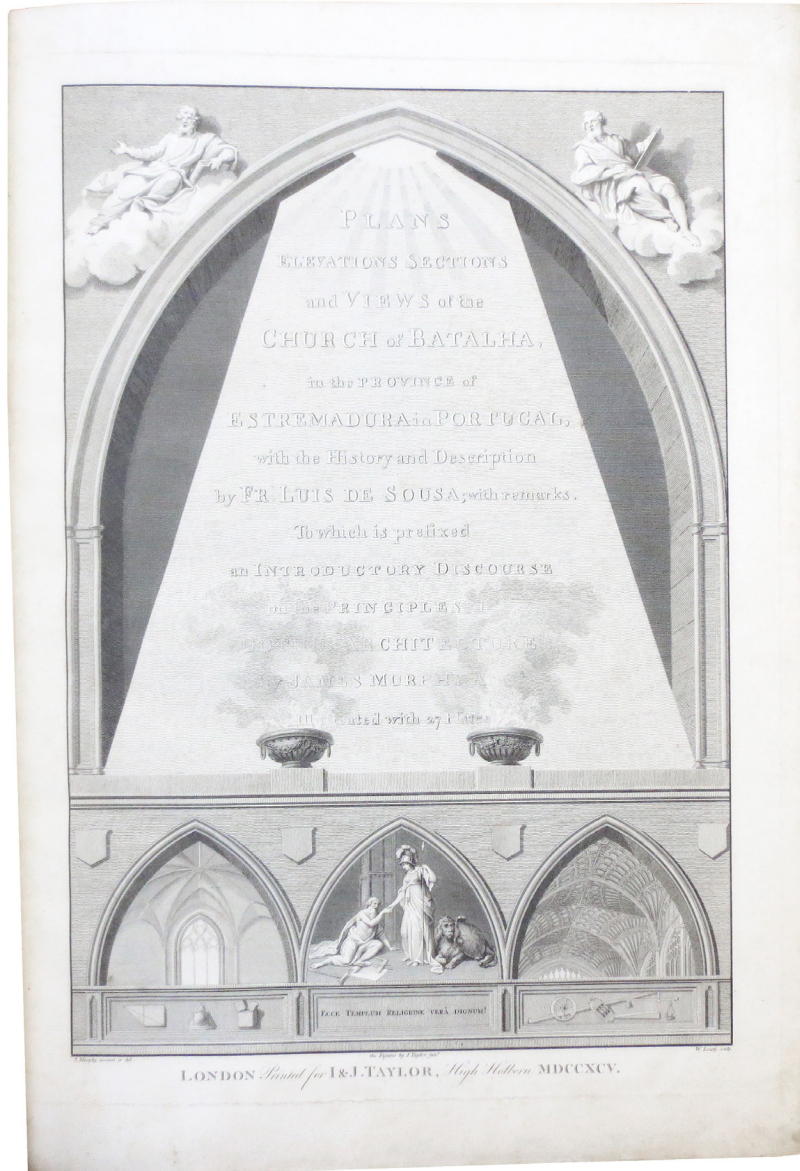 PLANS
ELEVATIONS SECTIONS
and VIEWS of the
CHURCH of BATALHA,
in the PROVINCE of
ESTREMADURA in PORTUGAL,
with the History and Description
by FR. LUIS DE SOUSA; with remarks.
To which is prefixed
an INTRODUCTORY DISCOURSE
on the PRINCIPLES
ARCHITECTURE
JAMES MURPHY
with 27 Plates
ECCE TEMPLUM RELIGIONE VERÂ DIGNUM!
J. Murphy invent. et del.
the Figures by I. Taylor jun.r
W. Lowry sculp.
LONDON Printed for I & J. TAYLOR, High Holborn MDCCXCV.